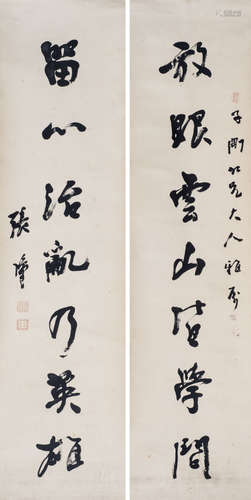 子刚仁兄大人雅属
放眼雲山皆學問
留心治亂乃英雄
張謇